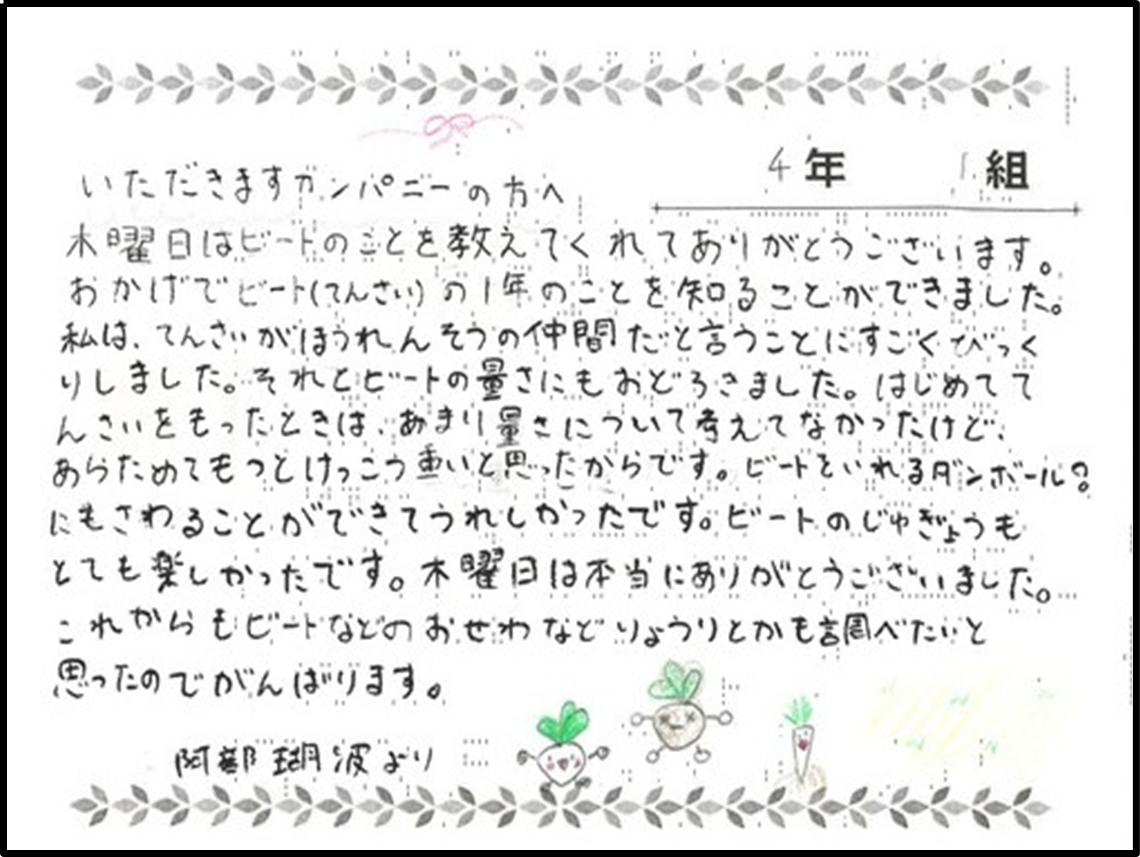 4年 1組
いただきますカンパニーの方へ
木曜日はビートのことを教えてくれてありがとうございます。
おかげでビート(てんさい)の1年のことを知ることができました。
私は、てんさいがほうれんそうの仲間だと言うことにすごくびっく
りしました。それとビートの量さにもおどろきました。はじめてて
んさいをもったときは、あまり量さについて考えてなかったけど、
あらためてもつとけっこう重いと思ったからです。ビートをいれるダンボール?
にもさわることができてうれしかったです。ビートのじゅぎょうも
とても楽しかったです。木曜日は本当にありがとうございました。
これからもビートなどのおせわなどりょうりとかも調べたいと
思ったのでがんばります。
阿部瑚波より